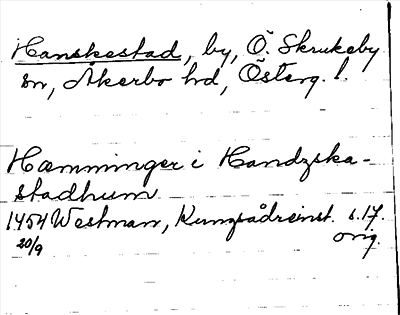 Hanskestad, by, Ö. Skrukeby
sn, Åkerbo hd, Österg. l.
Hæmminger i Handzska-
stadhum
1454 Westman, Kungsådreinst. s. 17.
20/9 orig.